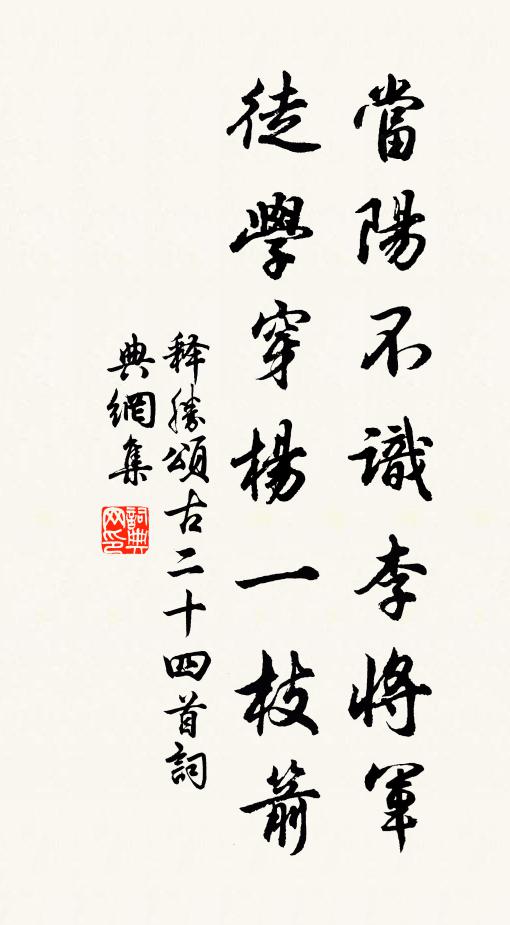 當陽不識李將軍
徒學穿楊一枝箭
释勝頌古二十四首詞
典網集
詞典网印